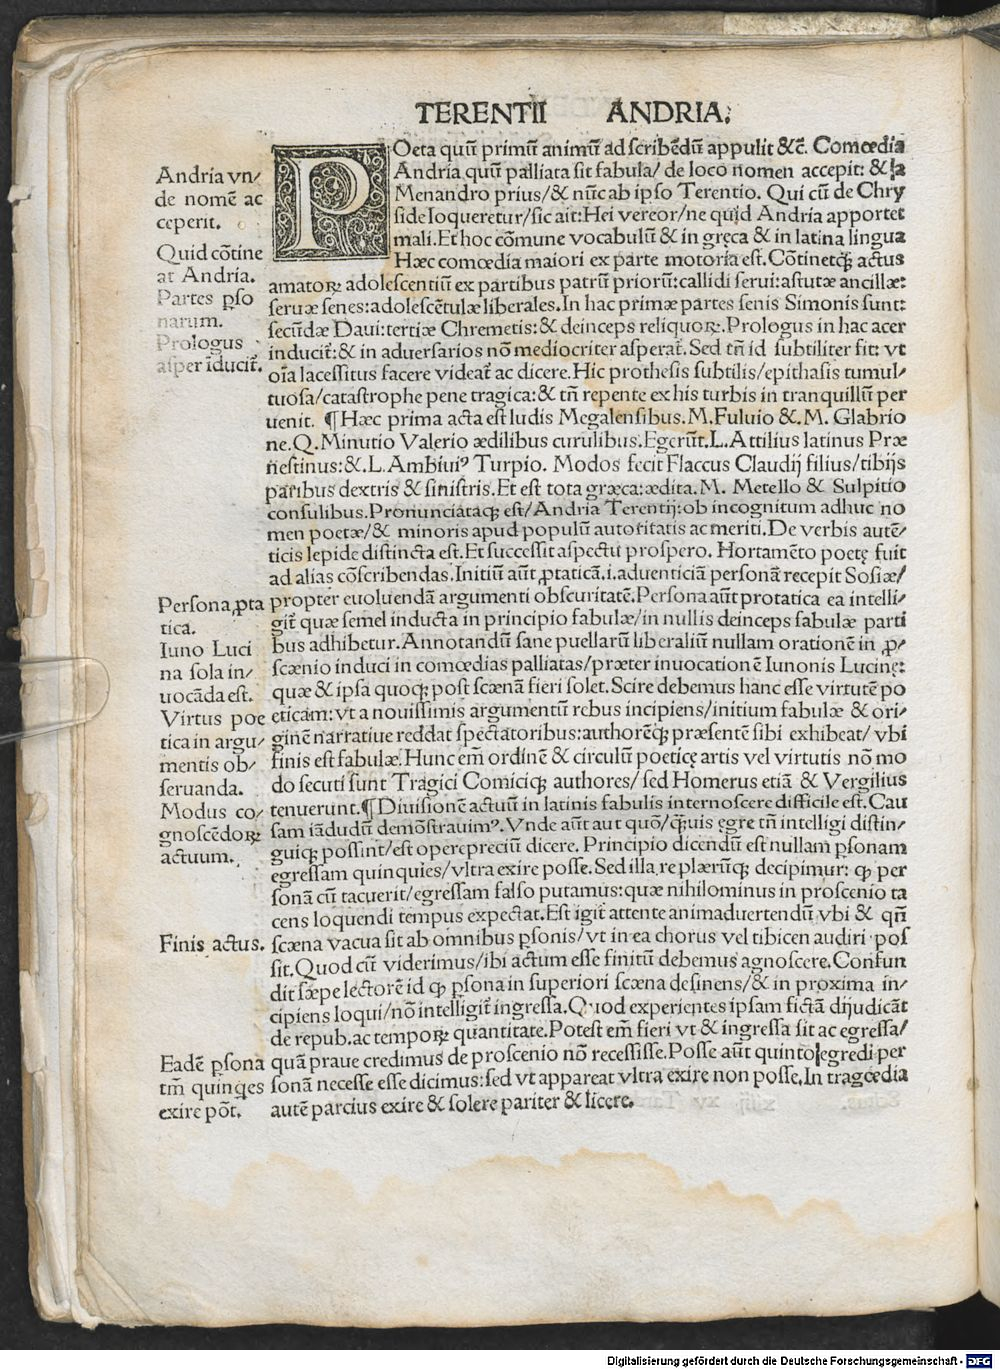 TERENTII ANDRIA.
POeta quū primū animū ad scribēdū appulit &c̄. Comœdia
Andria quū palliata sit fabula/ de loco nomen accepit: & a
Menandro prius/& nūc ab ipso Terentio. Qui cū de Chry
side loqueretur/sic ait: Hei vereor/ne quid Andria apportet
mali. Et hoc cōmune vocabulū & in gręca & in latina lingua
Hæc comœdia maiori ex parte motoria est. Cōtinetqꝫ actus
amatorꝝ adolescentiū ex partibus patrū priorū: callidi serui: astutæ ancillæ:
seruæ senes: adolescētulæ liberales. In hac primæ partes senis Simonis sunt:
secūdæ Daui: tertiæ Chremetis: & deinceps reliquorꝝ. Prologus in hac acer
inducit̄: & in aduersarios nō mediocriter asperat̄. Sed tn̄ id subtiliter fit: vt
oīa lacessitus facere videat̄ ac dicere. Hic prothesis subtilis/epithasis tumul/
tuosa/catastrophe pene tragica: & tn̄ repente ex his turbis in tranquillū per
uenit. ¶ Hæc prima acta est ludis Megalensibus. M. Fuluio &. M. Glabrio
ne. Q. Minutio Valerio ædilibus curulibus. Egerūt. L. Attilius latinus Præ
nestinus: &. L. Ambiuiꝰ Turpio. Modos fecit Flaccus Claudij filius/tibijs
paribus dextris & sinistris. Et est tota græca: ædita. M. Metello & Sulpitio
consulibus. Pronunciataqꝫ est/Andria Terentij: ob incognitum adhuc no
men poetæ/& minoris apud populū autoritatis ac meriti. De verbis autē/
ticis lepide distincta est. Et successit aspectu prospero. Hortamēto poetę fuit
ad alias cōscribendas. Initiū aūt ꝓtaticā .i. aduenticiā personā recepit Sosiæ/
propter euoluendā argumenti obscuritatē. Persona aūt protatica ea intelli/
git̄ quæ semel inducta in principio fabulæ/in nullis deinceps fabulæ parti
bus adhibetur. Annotandū sane puellarū liberaliū nullam orationē in ꝓ/
scænio induci in comœdias palliatas/præter inuocationē Iunonis Lucinę:
quæ & ipsa quoqꝫ post scænā fieri solet. Scire debemus hanc esse virtutē po
eticam: vt a nouissimis argumentū rebus incipiens/initium fabulæ & ori/
ginē narratiue reddat spectatoribus: authorēqꝫ præsentē sibi exhibeat/ vbi
finis est fabulæ. Hunc em̄ ordinē & circulū poeticę artis vel virtutis nō mo
do secuti sunt Tragici Comiciqꝫ authores/ sed Homerus etiā & Vergilius
tenuerunt. ¶ Diuisionē actuū in latinis fabulis internoscere difficile est. Cau
sam iādudū demōstrauimꝰ. Vnde aūt aut quō/q̄uis ęgre tn̄ intelligi distin/
guiqꝫ possint/est operęprecium dicere. Principio dicendū est nullam ꝑsonam
egressam quinquies/vltra exire posse. Sed illa re plærūqꝫ decipimur: ꝙ per
sonā cū tacuerit/egressam falso putamus: quæ nihilominus in proscenio ta
cens loquendi tempus expectat. Est igit̄ attente animaduertendū vbi & qn̄
scæna vacua sit ab omnibus ꝑsonis/vt in ea chorus vel tibicen audiri pos
sit. Quod cū viderimus/ibi actum esse finitū debemus agnoscere. Confun
dit sæpe lectorē id ꝙ ꝑsona in superiori scæna desinens/& in proxima in/
cipiens loqui/nō intelligit̄ ingressa. Quod experientes ipsam fictā dijudicāt
de repub. ac temporꝝ quantitate. Potest em̄ fieri vt & ingressa sit ac egressa/
quā praue credimus de proscenio nō recessisse. Posse aūt quinto egredi per
sonā necesse esse dicimus: sed vt appareat vltra exire non posse. In tragœdia
autē parcius exire & solere pariter & licere.
Andria vn/
de nomē ac
ceperit.
Quid cōtine
at Andria.
Partes ꝑso
narum.
Prologus
asper īducit̄.
Persona ꝓta
tica.
Iuno Luci
na sola in/
uocāda est.
Virtus poe
tica in argu/
mentis ob/
seruanda.
Modus co/
gnoscēdorꝝ
actuum.
Finis actus.
Eadē ꝑsona
tm̄ quinqes
exire pōt.
Digitalisierung gefördert durch die Deutsche Forschungsgemeinschaft - DFG